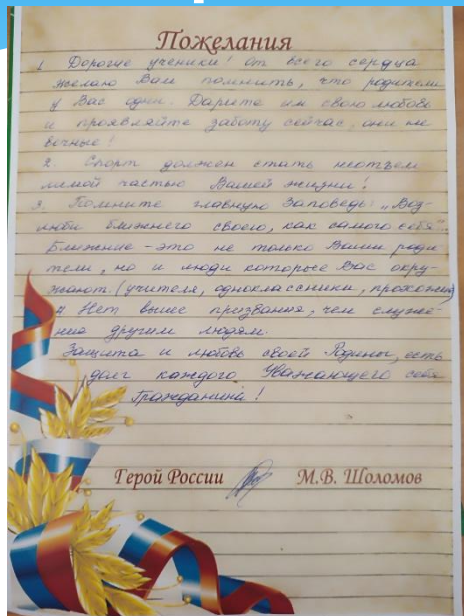 Пожелания
1. Дорогие ученики! От всего сердца
желаю Вам помнить, что родители
у Вас одни. Дарите им свою любовь
и проявляйте заботу сейчас, они не
вечные!
2. Спорт должен стать неотъем
лемой частью Вашей жизни!
3. Помните главную Заповедь: „Воз-
люби ближнего своего, как самого себя".
Ближние - это не только Ваши роди
тели, но и люди которые Вас окру-
жают. (учителя, одноклассники, прохожие)
4 Нет выше призвания, чем служе-
ние другим людям.
Защита и любовь своей Родины, есть
долг каждого Уважающего себя
Гражданина!
Герой России М.В. Шоломов